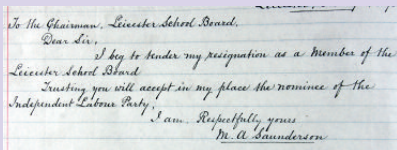 To the Chairman. Leicester School Board.
Dear Sir,
I beg to tender my resignation as a Member of the
Leicester School Board
Trusting you will accept in my place the nominee of the
Independent Labour Party.
I am. Respectfully yours
M. A Saunderson